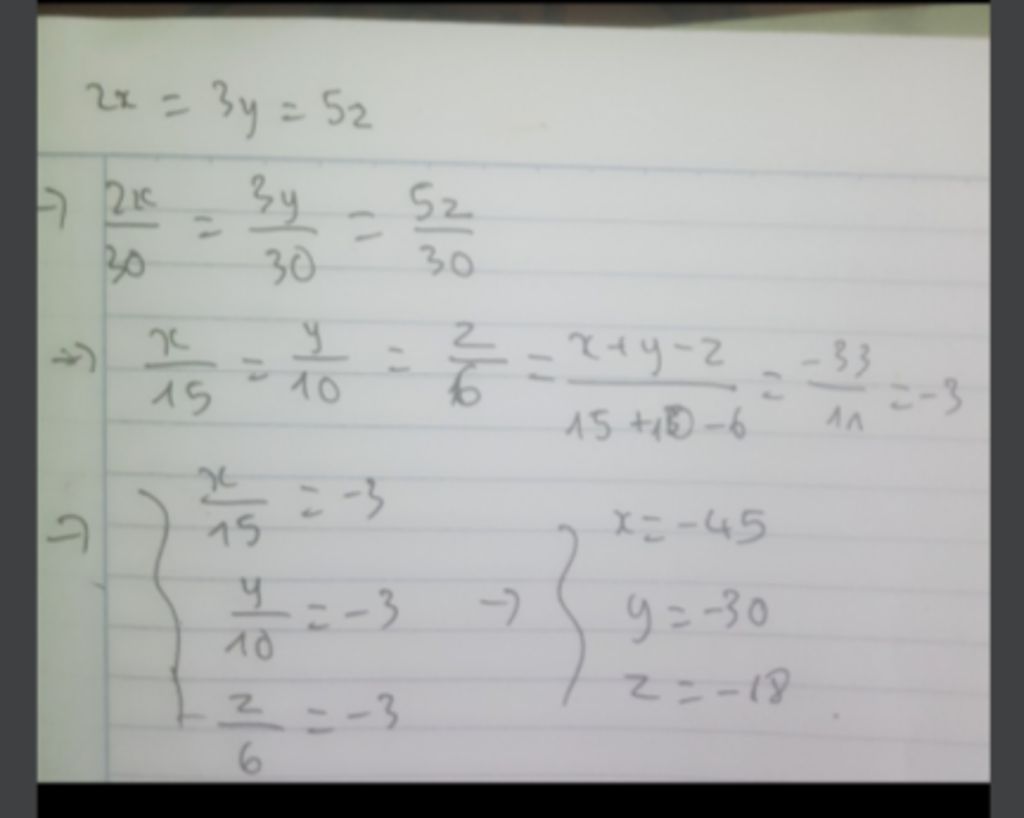 2x = 3y = 5z
→ 2x/30 = 3y/30 = 5z/30
→ x/15 = y/10 = z/6 = x+y-z/15+10-6 = -33/11 = -3
→ x/15 = -3
y/10 = -3 → x = -45
z/6 = -3 y = -30
z = -18